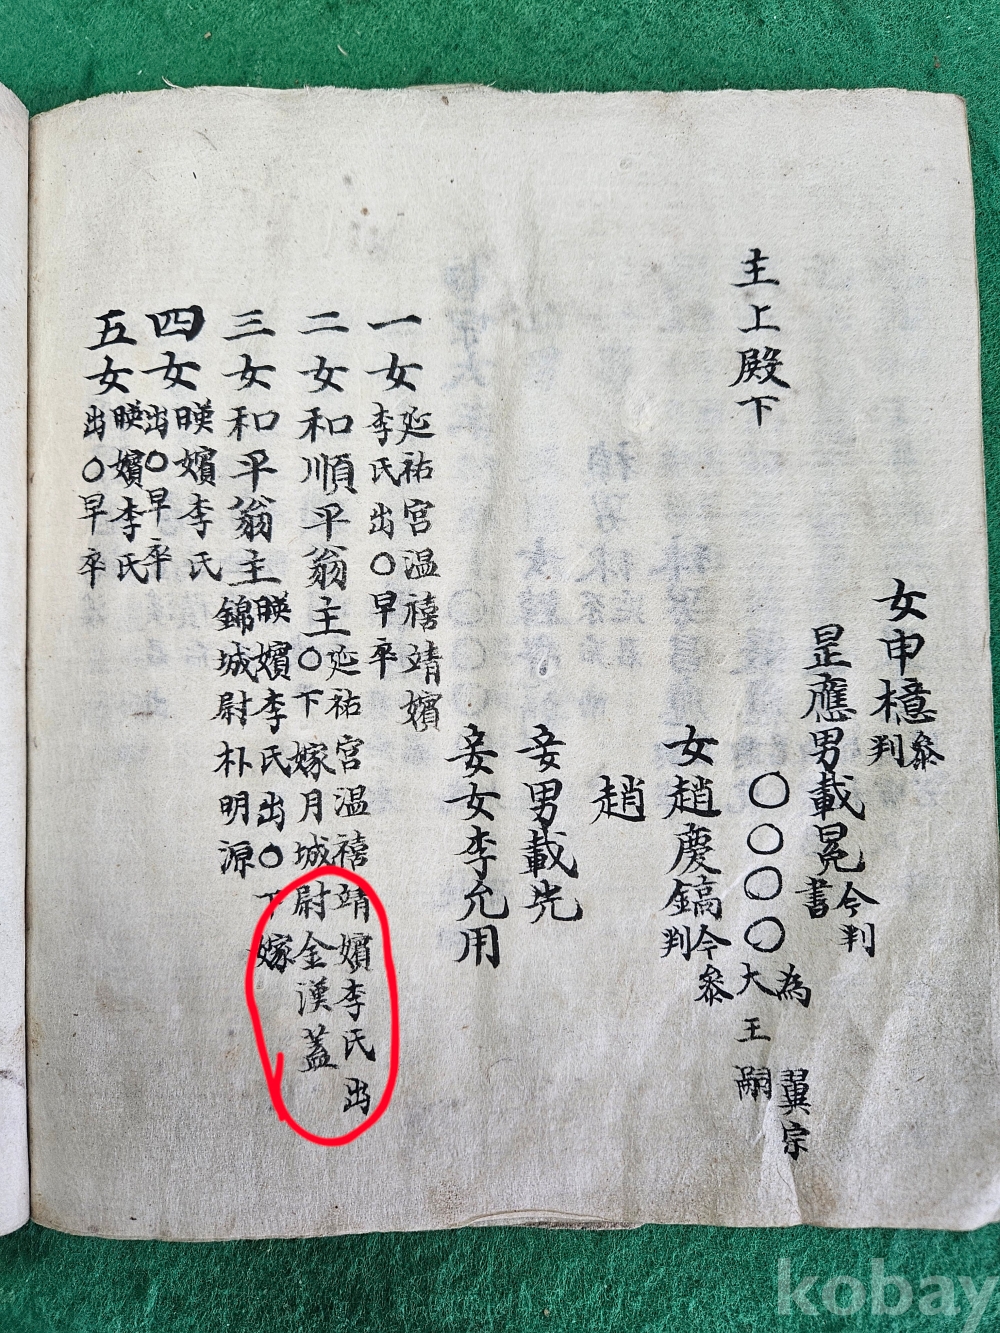 主上殿下
女申檍
參
判
昰應男載冕
今判
書
〇〇〇〇
為翼宗
大王嗣
女趙慶鎬
今參
判
趙
妾男載先
妾女李允用
一女
延祐宮溫禧靖嬪
李氏出〇早卒
二女和順平翁主〇
延祐宮溫禧靖嬪李氏出
下嫁月城尉金漢蓋
三女和平翁主
暎嬪李氏出〇下嫁
錦城尉朴明源
四女
暎嬪李氏
出〇早卒
五女
暎嬪李氏
出〇早卒
kobay